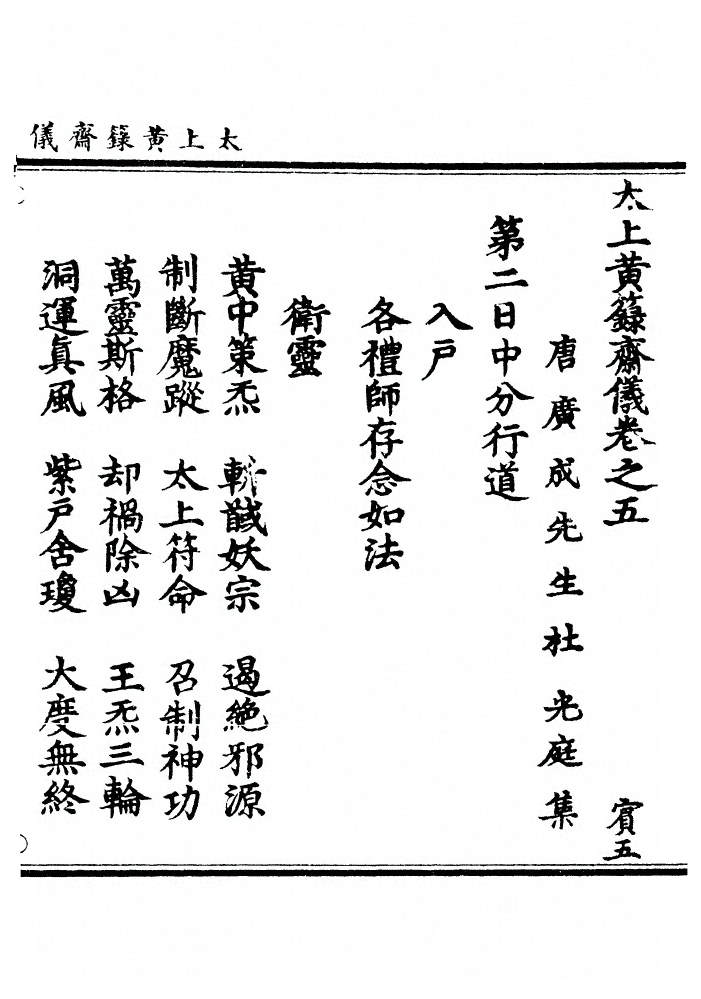 太上黃籙齋儀
太上黃籙齋儀卷之五 賓五
唐廣成先生杜光庭集
第二日中分行道
入戶
各禮師存念如法
衛靈
黃中策炁 斬馘妖宗 遏絶邪源
制斷魔蹤 太上符命 召制神功
萬靈斯格 却禍除凶 王炁三輪
洞運眞風 紫戶舍瓊 大度無終